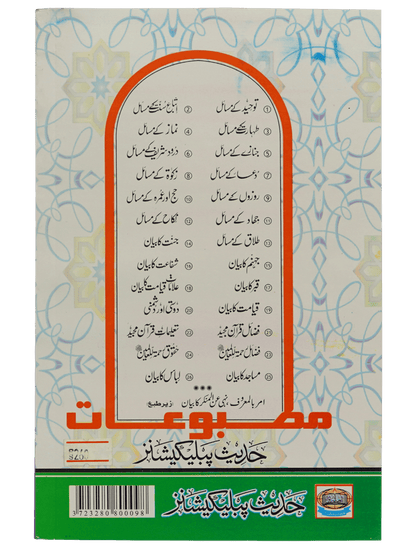 ① توحید کے مسائل ② اتباع سنت کے مسائل
③ طہارت کے مسائل ④ نماز کے مسائل
⑤ جنازے کے مسائل ⑥ درود شریف کے مسائل
⑦ دعا کے مسائل ⑧ زکوٰۃ کے مسائل
⑨ روزوں کے مسائل ⑩ حج اور عمرہ کے مسائل
⑪ جہاد کے مسائل ⑫ نکاح کے مسائل
⑬ طلاق کے مسائل ⑭ جنت کا بیان
⑮ جہنم کا بیان ⑯ شفاعت کا بیان
⑰ قبر کا بیان ⑱ علامات قیامت کا بیان
⑲ قیامت کا بیان ⑳ دوستی اور دشمنی
㉑ فضائل قرآن مجید ㉒ تعلیمات قرآن مجید
㉓ فضائل رحمۃ للعالمین ㉔ حقوق رحمۃ للعالمین
㉕ مساجد کا بیان ㉖ لباس کا بیان
امر بالمعروف نہی عن المنکر کا بیان (زیر طبع)
مطبوعات
حدیث پبلیکیشنز
حدیث پبلیکیشنز
3723280800098